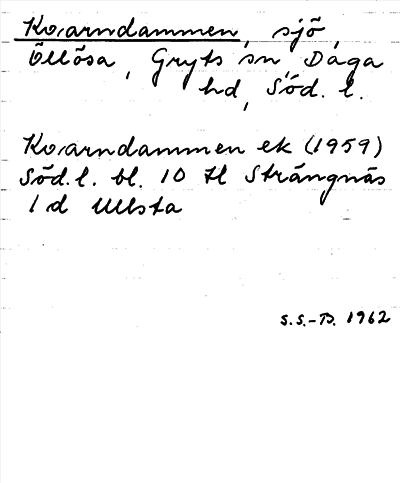 Kvarndammen, sjö,
Öllösa, Gryts sn, Daga
hd, Söd. l.
Kvarndammen ek (1959)
Söd. l. bl. 10 tl Strängnäs
1 d Ulsta
S.S.-B. 1962